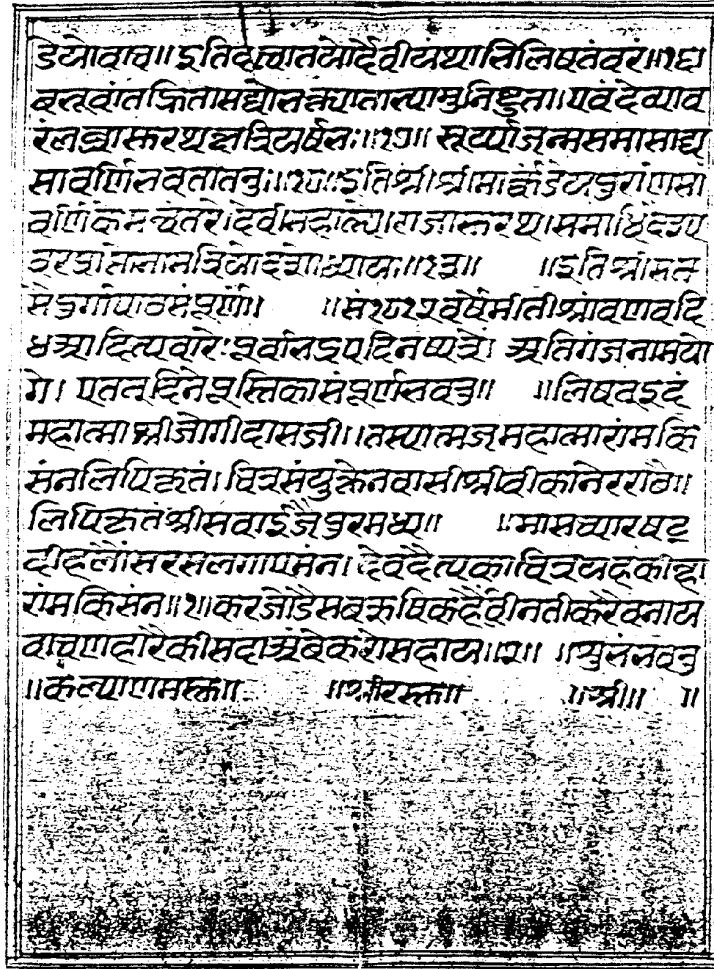 डेयोवाच॥ इति दत्वा तयोर्देवी यथाभिलषितं वरं॥१६॥
बभूवांतर्हिता सद्यो भक्त्या ताभ्यामभिष्टुता॥ एवं देव्या व
रं लब्ध्वा सुरथः क्षत्रियर्षभः॥१७॥ सूर्याजन्म समासाद्य
सावर्णिर्भवता तनुः॥१८॥ इति श्री श्रीमार्कंडेयपुराणे सा
वर्णिके मन्वंतरे। देवीमहात्म्ये। राजासुरथ। समाधि
वरप्राप्तोनाम त्रियोदशोध्यायः॥१३॥ ॥इति श्रीसप्त
संपूर्ण॥ ॥सं वर्षे मीती श्रावण वदि
आदित्यवारे। नाम यो
गे। एतत् दिने पूस्तिका संपूर्ण भवतु॥ ॥लिषतं इदं
महात्मा श्री जोगीदासजी॥ तस्यात्मज महात्मा रांमकि
संन लिपिकृतं। चित्रसंयुक्तेन वासी श्रीवीकानेर राठे॥
लिपिकृतं श्रीसवाई जैपुरमध्ये॥ ॥मास च्यार षट
दीह लौं सरस लगाए मंन। देव दैत्य का चित्र यह कीन्हा
रांमकिसंन॥१॥ कर जोडै सब ऋषि कहै वीनती करै वनाय
वाचणहारै की सदा अंबे करो सहाय॥२॥ ॥शुभंभवतु
॥कल्याणमस्तु॥ ॥श्रीरस्तु॥ ॥श्री॥ ॥